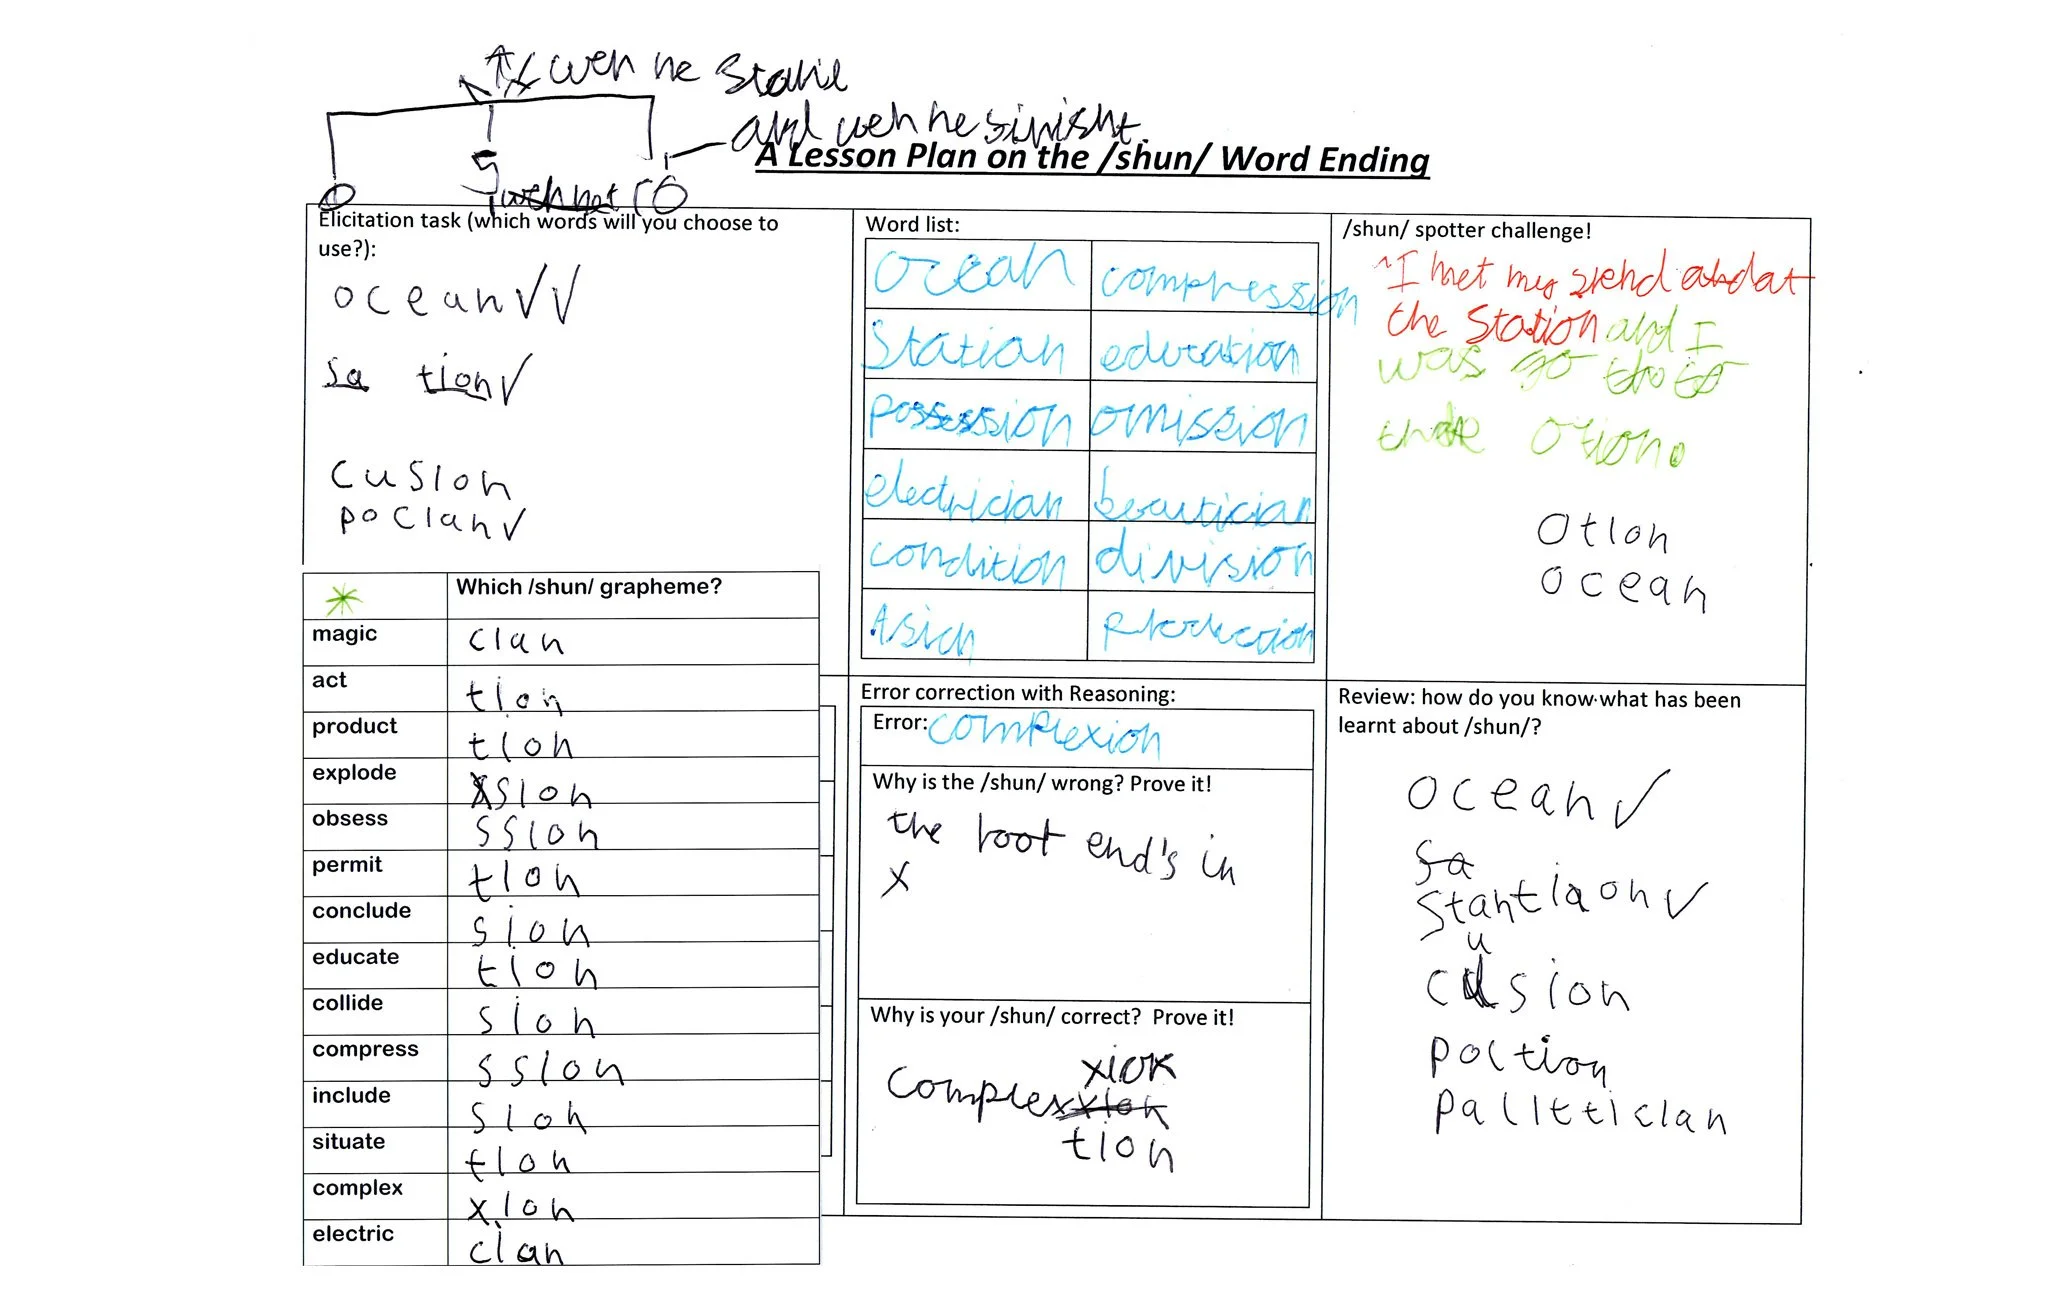 wen he
and wen he sinisht.
A Lesson Plan on the /shun/ Word Ending
0 5 10
Elicitation task (which words will you choose to
use?):
ocean ✓✓
sa tion ✓
cusion
pocian ✓
Which /shun/ grapheme?
magic cian
act tion
product tion
explode sion
obsess ssion
permit tion
conclude sion
educate tion
collide sion
compress ssion
include sion
situate tion
complex xion
electric cian
Word list:
ocean compression
Station education
possession omission
electrician beautician
condition division
Asian
Error correction with Reasoning:
Error: complexion
Why is the /shun/ wrong? Prove it!
the root end's in
x
Why is your /shun/ correct? Prove it!
xion
complex xion
tion
/shun/ spotter challenge!
I met my at
the Station and I
was go to
the otion.
otion
ocean
Review: how do you know what has been
learnt about /shun/?
ocean ✓
sa
✓
u
cusion
poltion
palittician